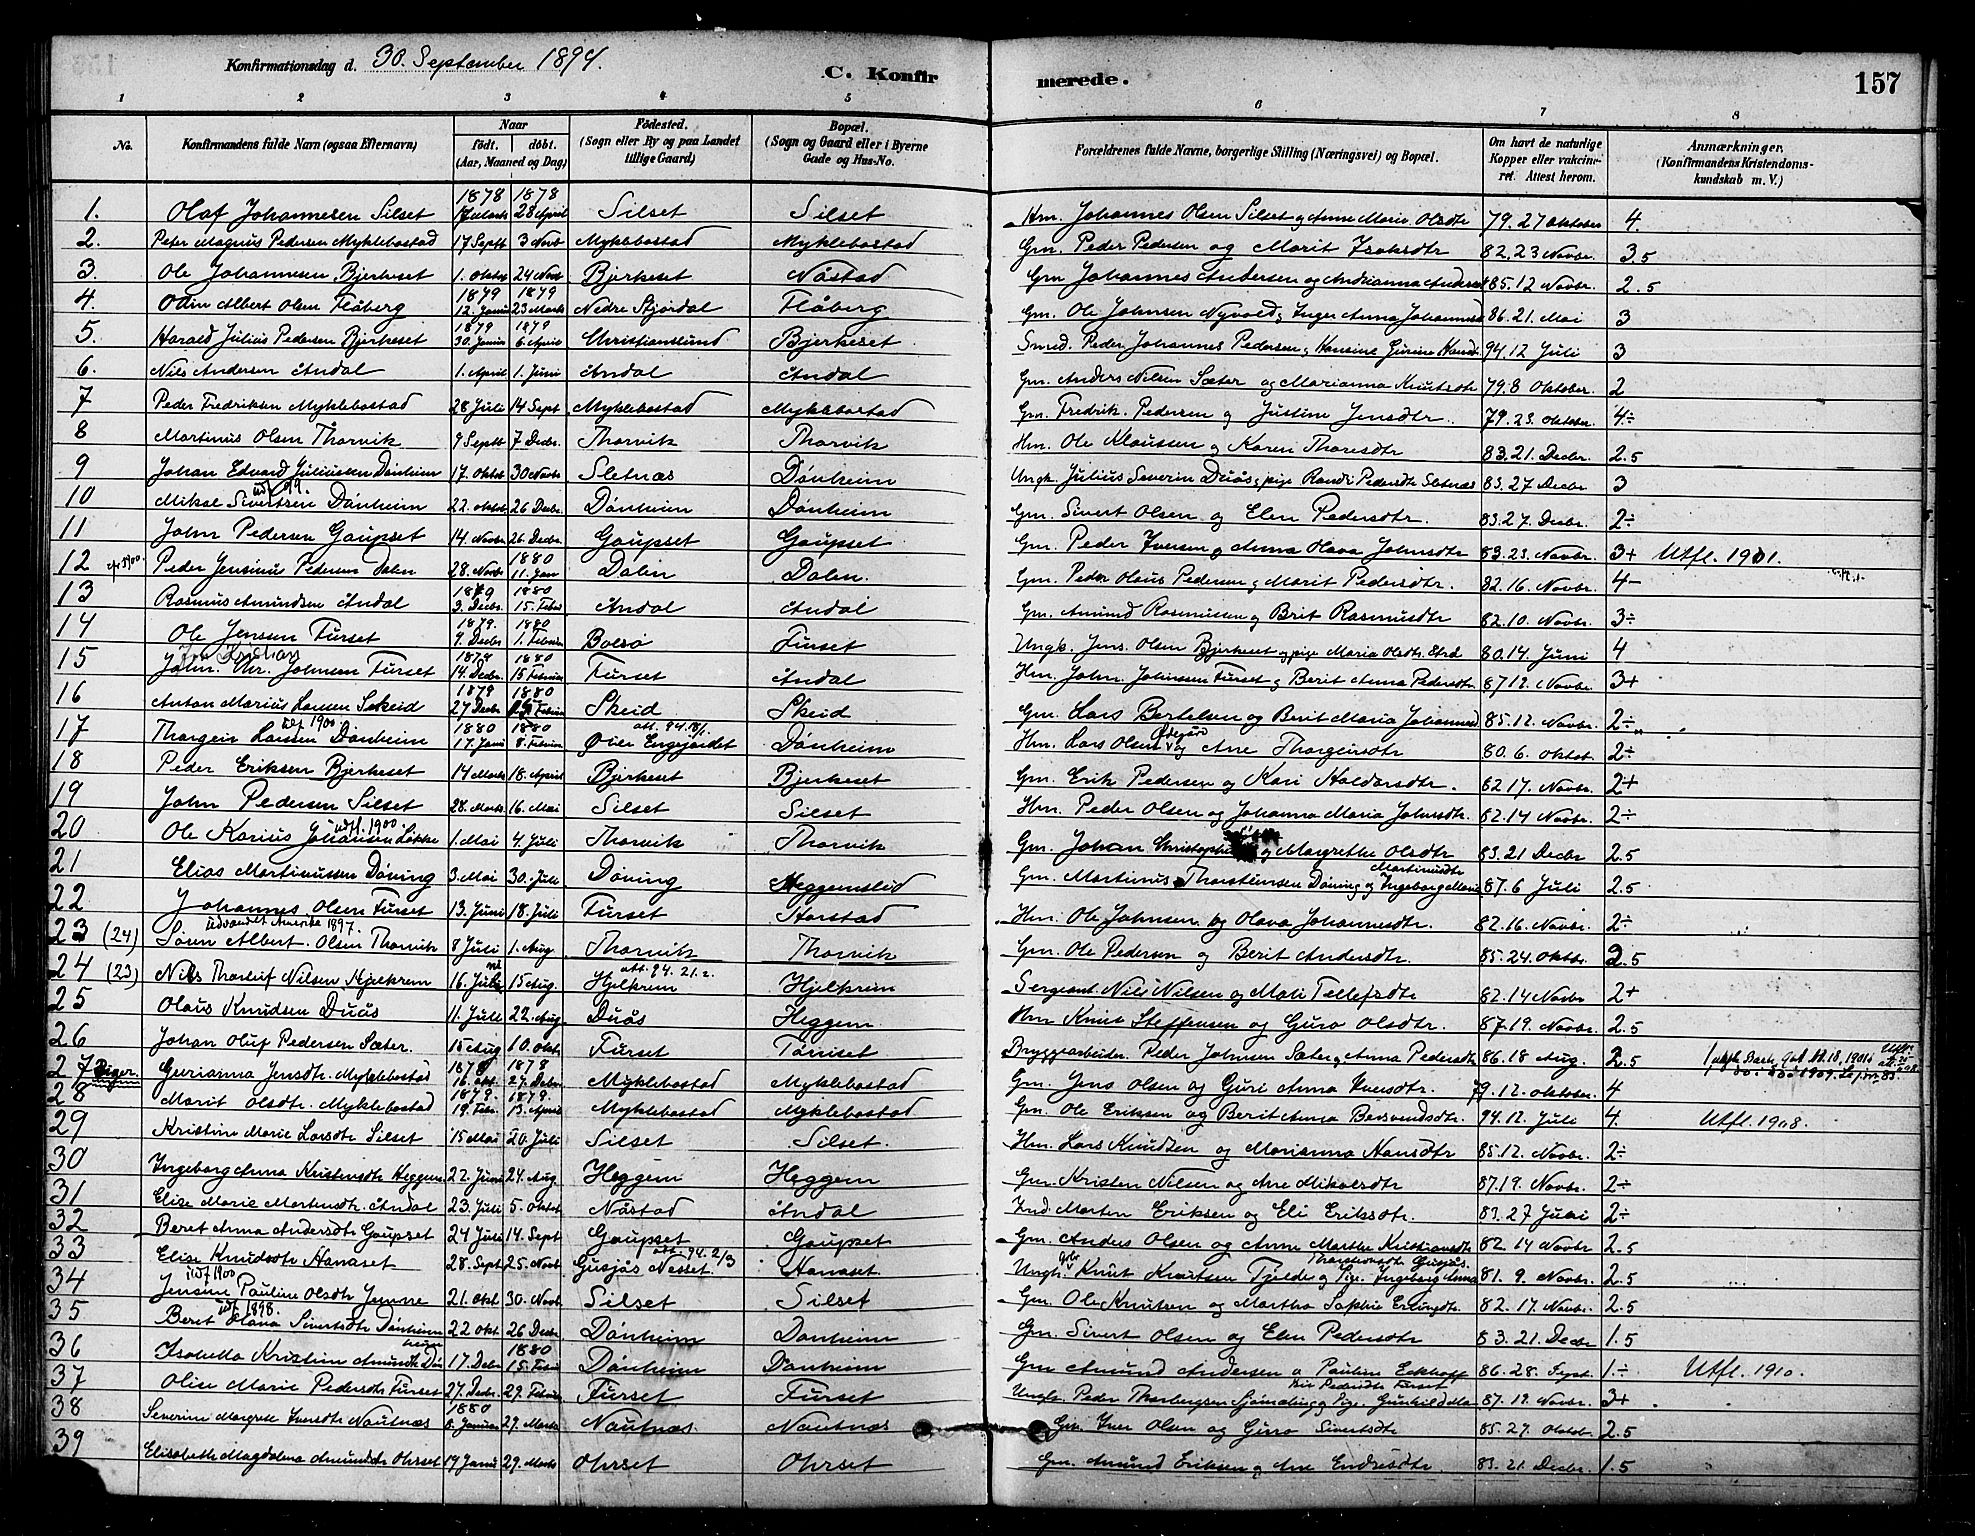 Konfirmationsdag d. 30. September 1894.
C. Konfirmerede.
157
1 2 3 4 5 6 7 8
No.
Konfirmandens fulde Navn (ogsaa Efternavn)
Naar født. døbt. (Aar, Maaned og Dag)
Fødested. (Sogn eller By og paa Landet tillige Gaard)
Bopæl. (Sogn og Gaard eller i Byerne Gade og Hus-No.
Forældrenes fulde Navne, borgerlige Stilling (Næringsvei) og Bopæl.
Om havt de naturlige Kopper eller vakcineret. Attest herom.
Anmærkninger, (Konfirmandens Kristendomskundskab m. V.)
1878 1878
1. Olaf Johannesen Silset 17 Marts 28 April Silset Silset Hm. Johannes Olsen Silset og Anne Marie Olsdtr 79. 27 Oktober 4.
2. Peter Magnus Pedersen Myklebostad 17 Septb 3 Novb Myklebostad Myklebostad Gm. Peder Pedersen og Marit Isaksdtr 82. 23 Novbr. 3.5
3. Ole Johannesen Bjerkeset 1. Oktob 24 Novb Bjerkeset Nåstad Gm Johannes Andersen og Andrianna 85. 12 Novbr. 2.5
1879 1879
4. Odin Albert Olsen Flåberg 12. Januar 23 Marts Nedre Stjørdal Flåberg Gm. Ole Johnsen Nyvold og Inger Anna 86. 21. Mai 3
1879 1879
5. Harald Julius Pedersen Bjerkeset 30. Januar 6. April Christianssund Bjerkeset Smed. Peder Johannes Pedersen og Hansine Gurine 94. 12 Juli 3
6. Nils Andersen Åndal 1. April 1. Juni Åndal Åndal Gm. Anders Nilsen Sæter og Marianna Knutsdtr 79. 8 Oktober. 2
7 Peder Fredriksen Myklebostad 28 Juli 14 Sept Myklebostad Myklebostad Gm. Fredrik Pedersen og Justine Jensdtr. 79. 23. Oktober. 4÷
8 Martinus Olsen Thorvik 9 Septb 7 Decbr. Thorvik Thorvik Hm. Ole Klaussen og Karen Thoresdtr 83. 21. Decbr. 2.5
9 Johan Edvard Juliussen Dønheim 17. Oktob 30 Novb Sletnæs Dønheim Ungk. Julius Severin Duås og pige Randi Pedersdtr Sletnæs 83. 27 Decbr 3
udf. 99.
10 Mikal Sivertsen Dønheim 22. Oktob 26 Decbr. Dønheim Dønheim Gm. Sivert Olsen og Elen Pedersdtr. 83. 27. Decbr. 2÷
11 John Pedersen Gaupset 14. Novbr 26. Decbr. Gaupset Gaupset Gm. Peder Iversen og Anna Olava Johnsdtr 83. 23. Novbr. 3+ Utfl. 1901.
1880
12 Peder Jensinus Pedersen Dalen 28. Novb 11. Jan Dalen Dalen. Gm. Peder Olaus Pedersen og Marit Pedersdtr. 82. 16. Novbr. 4-
1879 1880
13 Rasmus Amundsen Åndal 3. Decbr. 15. Febr Åndal Åndal Gm. Amund Rasmussen og Brit Rasmusdtr 82. 10. Novbr. 3÷
1879. 1880
14 Ole Jensen Furset 9. Decbr 1. Februar Bolsø Furset Ungk. Jens Olsen Bjerkeset og pige Maria Olsdtr. 80. 14. Juni 4
Kristian
15 John. Chr. Johnsen Furset 14. Decbr. 15 Februar Furset Åndal Hm. John Johnsen Furset og Berit Anna Pedersdtr 87 12. Novbr. 3+
1879 1880
16 Anton Marius Larsen Skeid 27 Decbr Februar Skeid Skeid Gm. Lars Bertelsen og Berit Maria 85. 12. Novbr. 2÷
udf 1900 1880 1880 att. 94.
17 Thorgeir Larsen Dønheim 17. Januar 8. Februar Øvre Enggjerdet Dønheim Hm. Lars Olsen Ødegård og Ane Thorgeirsdtr 80. 6. Oktob. 2÷
18 Peder Eriksen Bjerkeset 14 Marts 18. April Bjerkeset Bjerkeset Gm. Erik Pedersen og Kari Haldorsdtr. 82 17. Novbr. 2+
19 John Pedersen Silset 28. Marts 16. Mai Silset Silset Hm. Peder Olsen og Johanna Maria Johnsdtr. 82. 14 Novbr. 2÷
udfl. 1900.
20 Ole Karius Johansen Løkke 1. Mai 4. Juli Thorvik Thorvik Gm. Johan og Margrethe Olsdtr 83. 21 Decbr 2.5
21 Elias Martinussen Døving 3. Mai 30. Juli Døving Heggemslid Gm. Martinus Thorsteinsen Døving og Ingeborg Marie Martinusdtr 87. 6 Juli 2.5
22 Johannes Olsen Furset 13. Juni 18. Juli Furset Horstad Hm. Ole Johnsen og Olava Johannesdtr. 82. 16. Novbr. 2÷
udvandret Amerika 1897.
23 (24) Søren Albert Olsen Thorvik 8 Juli 1. Aug Thorvik Thorvik Gm. Ole Pedersen og Berit Andersdtr 85. 24. Oktbr. 2.5
att. 94. 21.
24 (23) Nils Thorleif Nilsen Hjelkrem 16. Juli 15 Aug. Hjelkrem Hjelkrem Sergeant. Nils Nilsen og Mali Tellefsdtr 82. 14 Novbr 2+
25 Olaus Knudsen Duås 11. Juli 22. Aug. Duås Heggem Hm Knut Steffensen og Guro Olsdtr. 87. 19. Novbr. 2.5
26 Johan Oluf Pedersen Sæter. 15 Aug 10. Oktr. Furset Tøviset Bryggearbeider. Peder Johnsen Sæter og Anna Pedersdtr 86. 18 Aug. 2.5
Piger. 1878 1878
27 Gurianna Jensdtr. Myklebostad 16. Okt. 27. Decbr Myklebostad Myklebostad Gm. Jens Olsen og Guri Anna Iversdtr. 79. 12. Oktober. 4
1879. 1879.
28 Marit Olsdtr. Myklebostad 19. Febr. 13. April Myklebostad Myklebostad Gm. Ole Eriksen og Berit Anna 94. 12. Juli 4. Utfl. 1908.
29 Kristine Marie Larsdtr Silset 15 Mai 20. Juli Silset Silset. Hm. Lars Knudsen og Marianna Hansdtr 85. 12. Novbr. 2÷
30 Ingeborg Anna Kristensdtr Heggem 22. Juni 24. Aug. Heggem Heggem Gm. Kristen Nilsen og Ane Mikaelsdtr 87. 19. Novbr. 2÷
31 Elise Marie Mortensdtr. Åndal 23. Juli 5. Oktob Nåstad Åndal Ind. Morten Eriksen og Eli Eriksdtr. 83. 27 Juni 2÷
32 Beret Anna Andersdtr Gaupset 24 Juli 14. Sept Gaupset Gaupset Gm. Anders Olsen og Anne Marthe Kristiansdtr 82. 14 Novbr 2.5
att. 94. 2/3
33 Elise Knudsdtr Hanaset 28. Sept 25. Novb Gusjås Nesset. Hanaset Ungk. Knut Knutsen Tjelde og Pige. Ingeborg Anna 81. 9. Novbr. 2.5
udf 1900
34 Jensine Pauline Olsdtr 21. Okt. 30. Novb. Silset Silset Gm. Ole Knutsen og Martha Sophie Erlingsdtr. 82. 17. Novbr. 2.5
udf. 1898.
35 Beret Olava Sivertsdtr Dønheim 22 Okt. 26 Decbr Dønheim Dønheim Gm. Sivert Olsen og Elen Pedersdtr 83. 21. Decbr 1.5
1880
36 Isabella Kristine Amundsdtr Dønheim 17. Decbr 15. Febr Dønheim Dønheim Gm Amund Andersen og Pauline Eckhoff 86. 28. Sept. 1÷ Utfl. 1910.
37 Olise Marie Pedersdtr Furset 27. Decbr. 29. Februar Furset Furset Ungk. Peder Thorbergsen og Pige. Gunhild 87. 19. Novbr. 3+
1880
38 Severine Margrete Iversdtr Nautnæs 8. Januar 29. Marts Nautnæs. Nautnæs Gm. Iver Olsen og Guro Sivertsdtr 85. 27. Oktob. 2.5
39 Elisabeth Magdalena Amundsdtr Ohrset 14 Januar 29. Marts Ohrset Ohrset Gm. Amund Eriksen og Ane Endresdtr. 83. 21. Decbr. 1.5